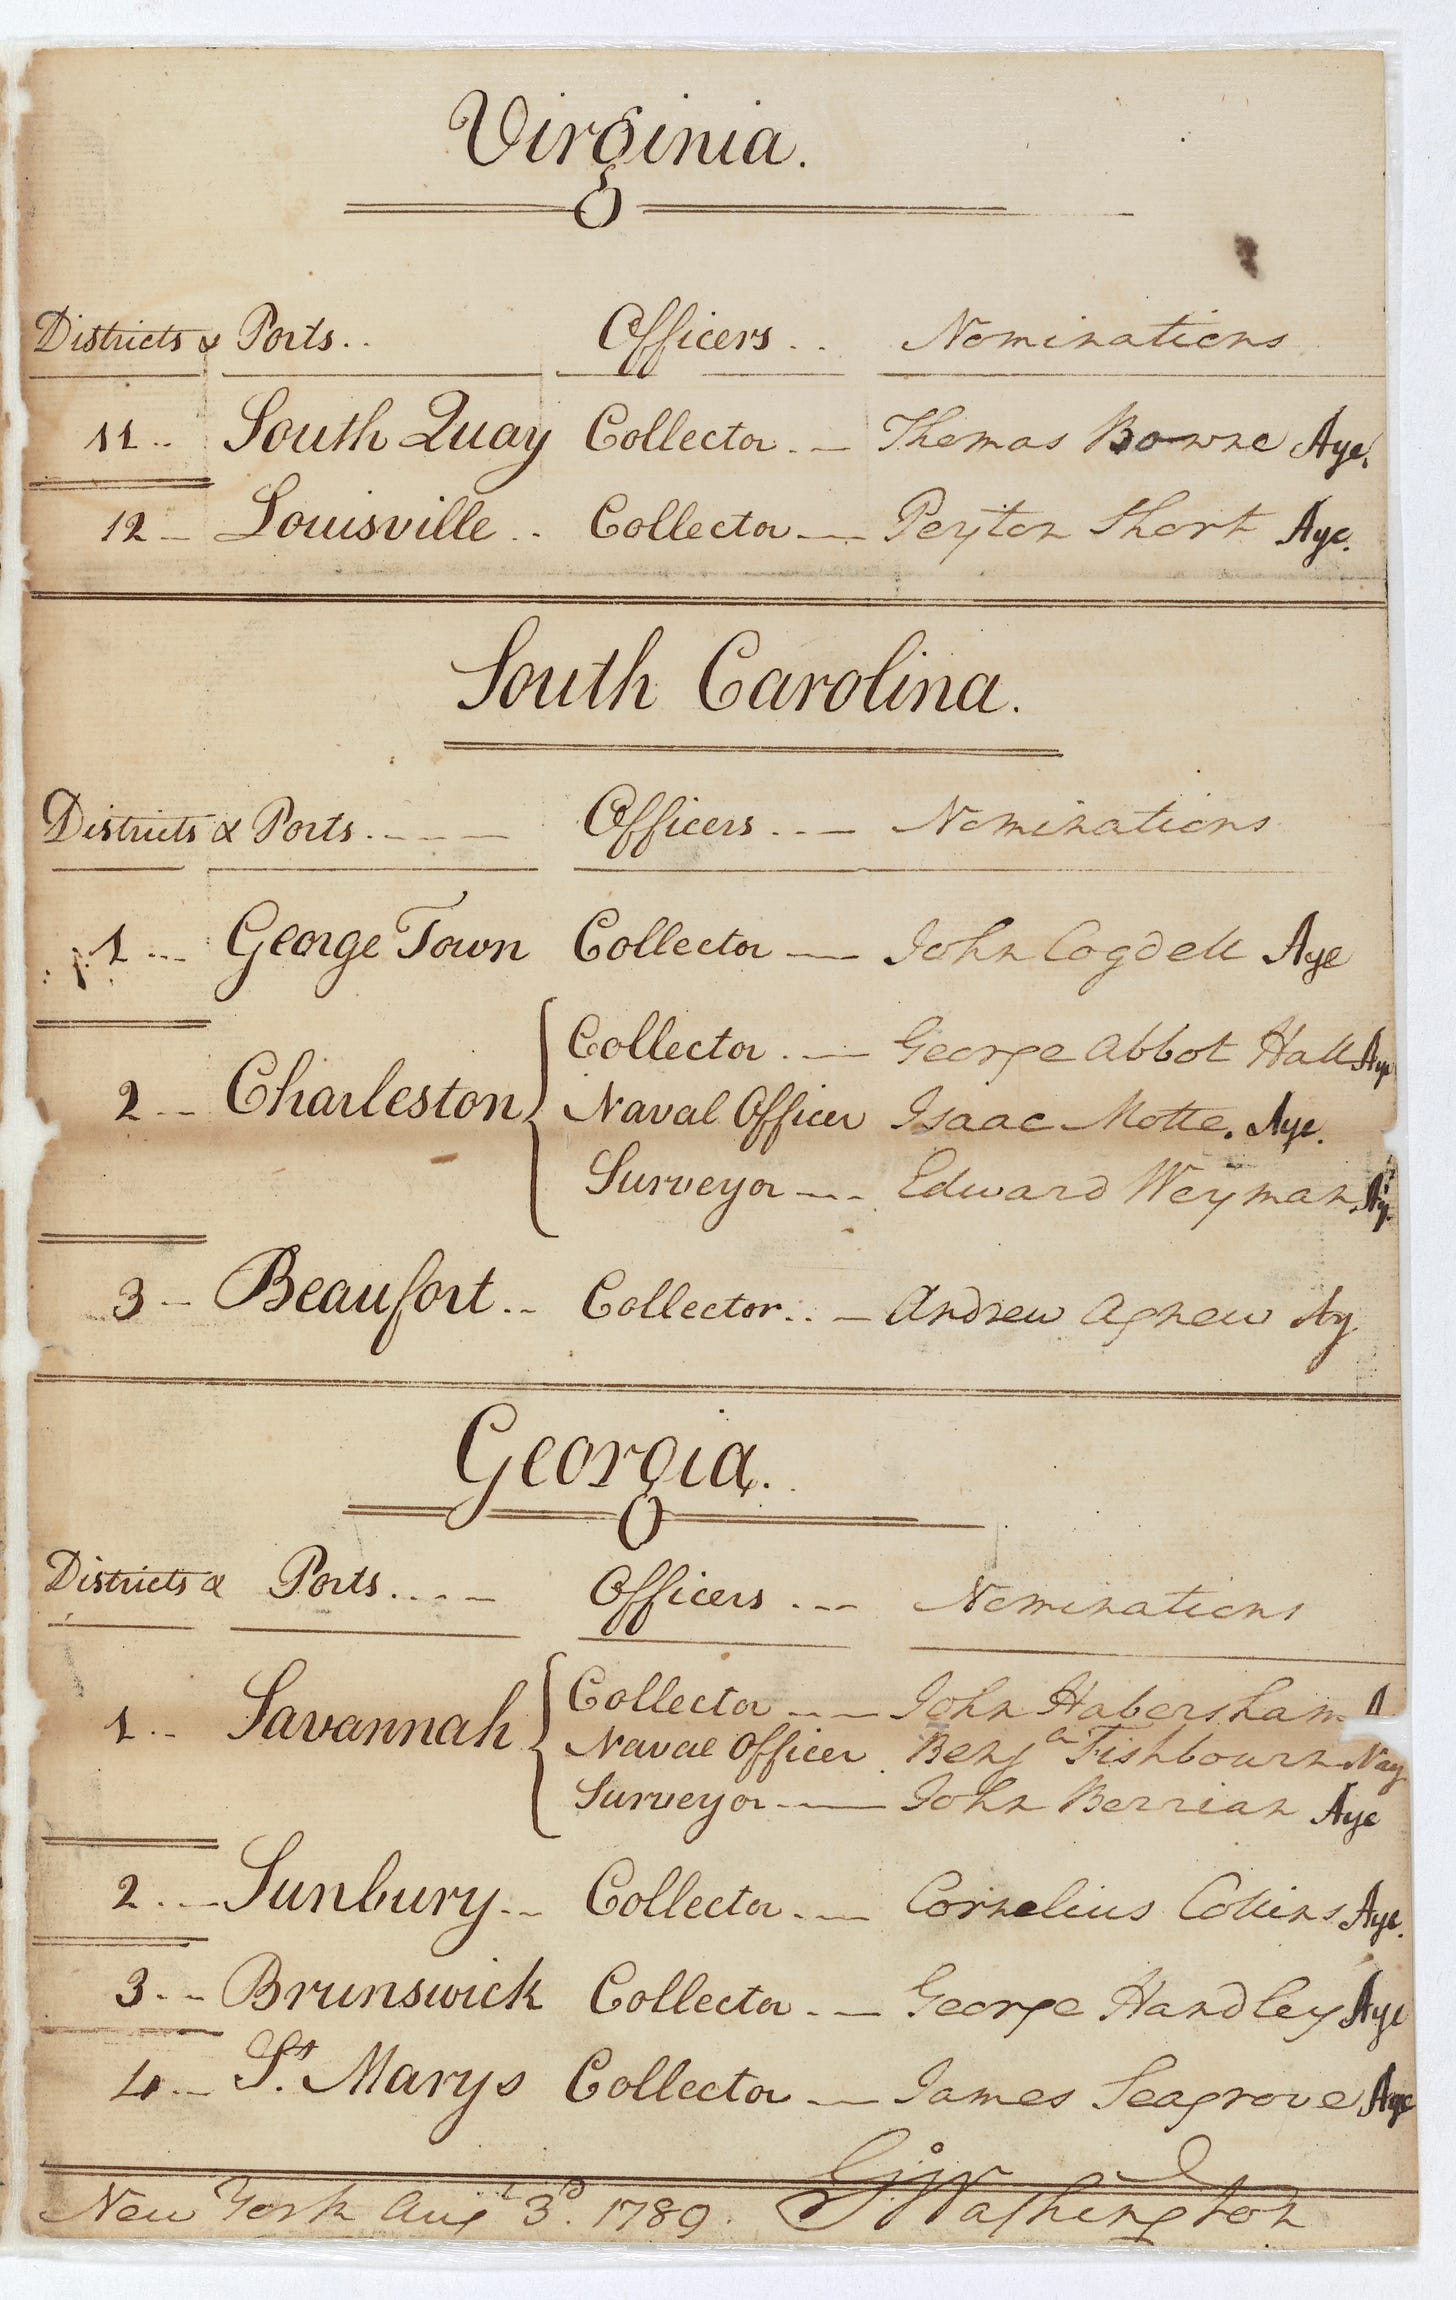 Virginia.
Districts & Ports.. Officers.. Nominations
11.. South Quay Collector.-- Thomas Bowne Aye.
12-- Louisville.. Collector--- Peyton Short Aye.
South Carolina.
Districts & Ports.---- Officers..-- Nominations
1... George Town Collector -- John Cogdell Aye
2-- Charleston { Collector.-- George Abbot Hall Aye
Naval Officer Isaac Motte. Aye.
Surveyor --- Edward Weyman Ay.
3-- Beaufort.. Collector..-- Andrew Agnew Ay
Georgia.
Districts & Ports.... Officers... Nominations
1.-- Savannah { Collector --- John Habersham A
Naval Officer Benjⁿ Fishbourn Nay
Surveyor ---- John Berrian Aye
2.-- Sunbury.. Collector.-- Cornelius Collins Aye.
3.-- Brunswick Collector.-- George Handley Aye
4-- Sᵗ. Marys Collector -- James Seagrove Aye
New York Augᵗ 3ᵈ. 1789. Gº: Washington